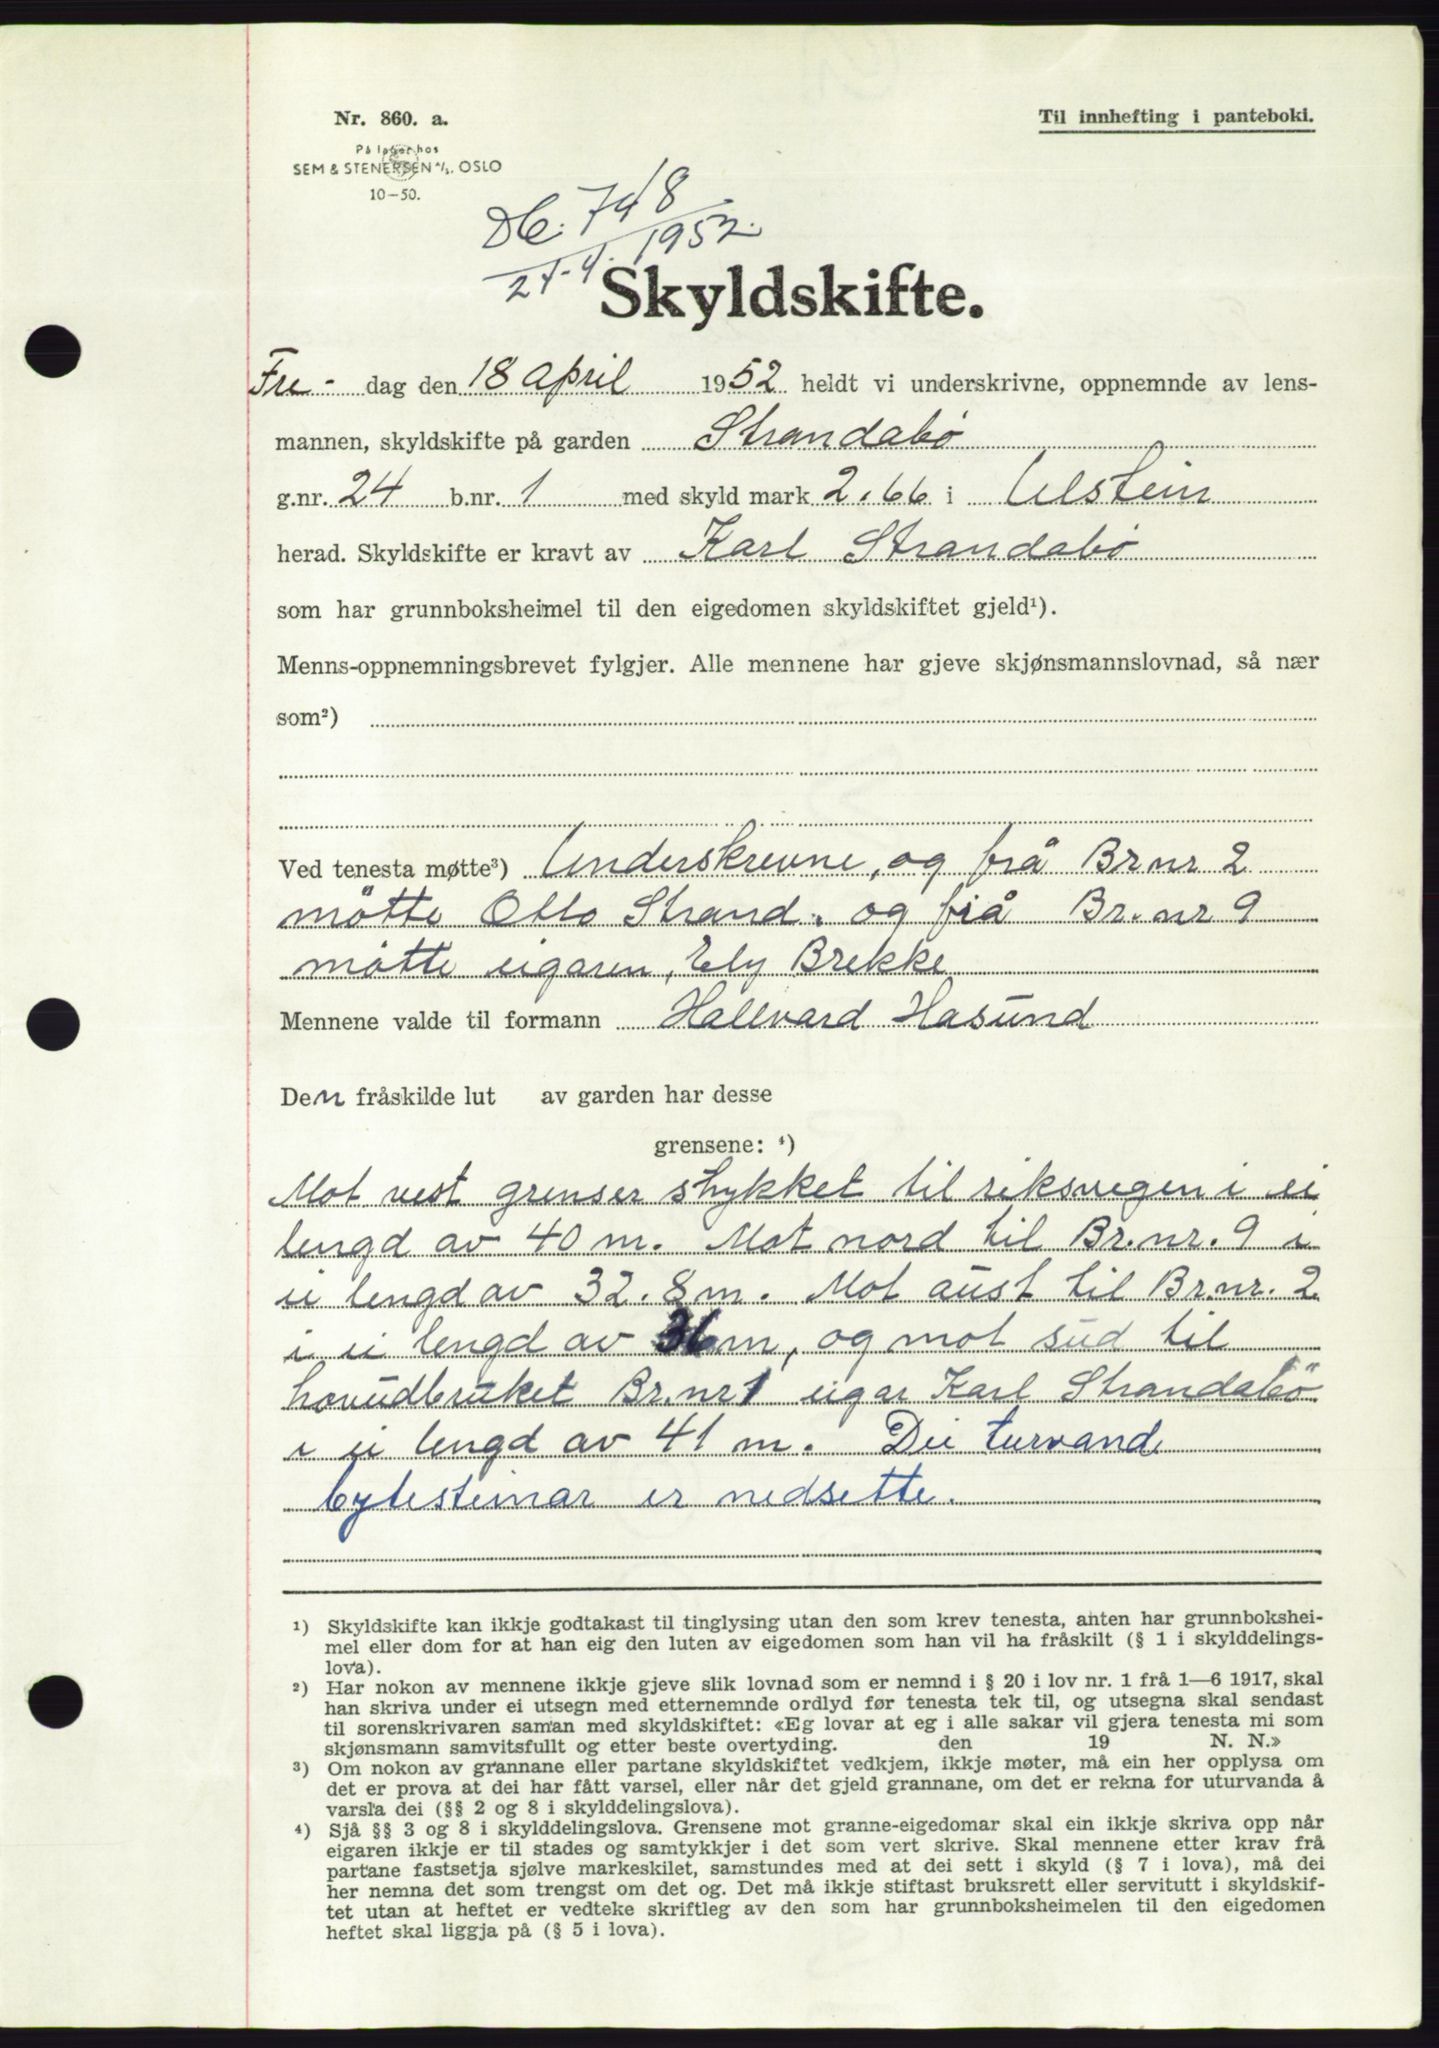 Nr. 860. a.
Til innhefting i panteboki.
På lager hos
SEM & STENERSEN A/S. OSLO
10-50.
Db. 748
1952.
Skyldskifte.
Fre- dag den 18 april 1952 heldt vi underskrivne, oppnemnde av lens-
mannen, skyldskifte på garden Strandabø
g.nr. 24 b.nr. 1 med skyld mark 2.66 i Ulstein
herad. Skyldskifte er kravt av Karl Strandabø
som har grunnboksheimel til den eigedomen skyldskiftet gjeld¹).
Menns-oppnemningsbrevet fylgjer. Alle mennene har gjeve skjønsmannslovnad, så nær
som²)
Ved tenesta møtte³) Underskrevne, og frå Br.nr 2
mötte Otto Strand. og frå Br.nr 9
møtte eigaren, Ely Brekke
Mennene valde til formann Hallvard Hasund
Den fråskilde lut av garden har desse
grensene: ⁴)
Mot vest grenser stykket til riksvegen i ei
lengd av 40 m. Mot nord til Br.nr. 9 i
ei lengd av 32.8 m. Mot aust til Br.nr. 2
i ei lengd av 36 m, og mot sud til
hovudbruket Br.nr 1 eigar Karl Strandabö
i ei lengd av 41 m. Dei turvand
bytesteinar er nedsette.
¹) Skyldskifte kan ikkje godtakast til tinglysing utan den som krev tenesta, anten har grunnbokshei-
mel eller dom for at han eig den luten av eigedomen som han vil ha fråskilt (§ 1 i skylddelings-
lova).
²) Har nokon av mennene ikkje gjeve slik lovnad som er nemnd i § 20 i lov nr. 1 frå 1—6 1917, skal
han skriva under ei utsegn med etternemnde ordlyd før tenesta tek til, og utsegna skal sendast
til sorenskrivaren saman med skyldskiftet: «Eg lovar at eg i alle sakar vil gjera tenesta mi som
skjønsmann samvitsfullt og etter beste overtyding. den 19 N. N.»
³) Om nokon av grannane eller partane skyldskiftet vedkjem, ikkje møter, må ein her opplysa om
det er prova at dei har fått varsel, eller når det gjeld grannane, om det er rekna for uturvanda å
varsla dei (§§ 2 og 8 i skylddelingslova).
⁴) Sjå §§ 3 og 8 i skylddelingslova. Grensene mot granne-eigedomar skal ein ikkje skriva opp når
eigaren ikkje er til stades og samtykkjer i det som vert skrive. Skal mennene etter krav frå
partane fastsetja sjølve markeskilet, samstundes med at dei sett i skyld (§ 7 i lova), må dei
her nemna det som trengst om det og. Det må ikkje stiftast bruksrett eller servitutt i skyldskif-
tet utan at heftet er vedteke skriftleg av den som har grunnboksheimelen til den eigedomen
heftet skal liggja på (§ 5 i lova).